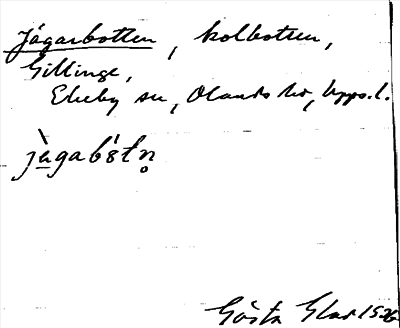 Jägarbotten, kolbotten,
Gillinge,
Ekeby sn, Olands hd, Upps.l.
jàgabótn̥
Gösta